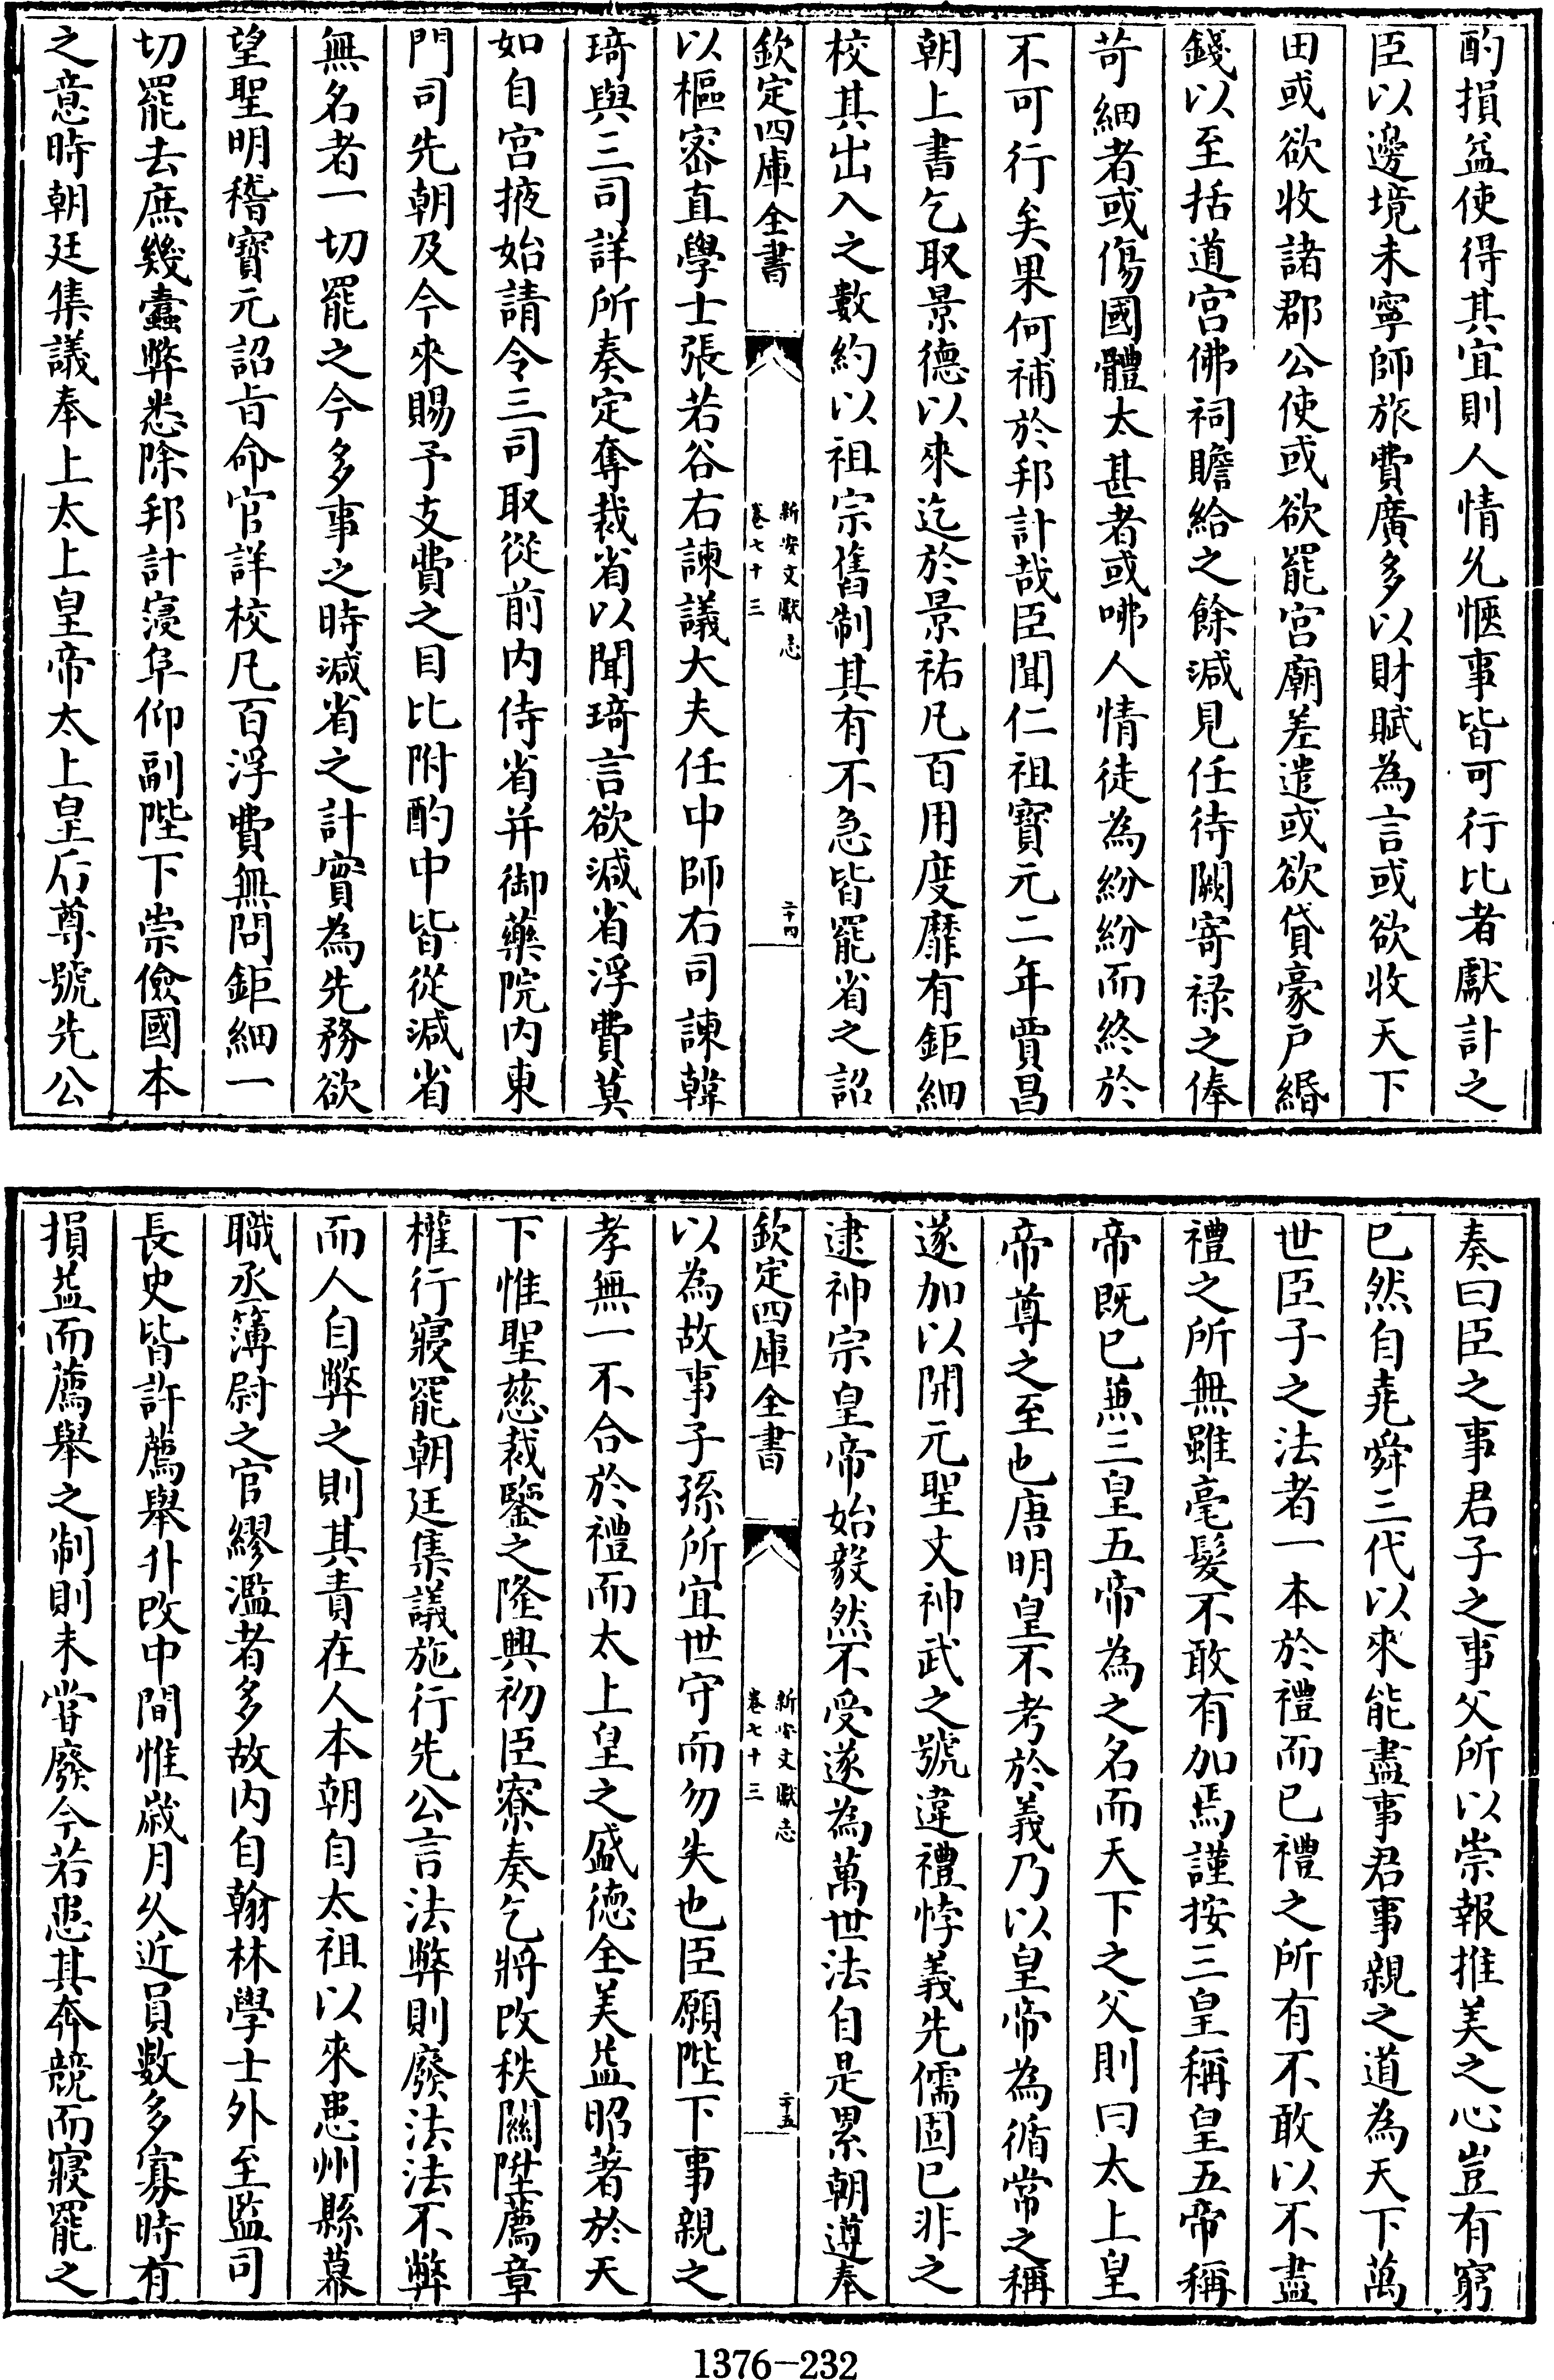 酌損益使得其宜則人情允愜事皆可行比者獻計之
臣以邊境未寧師旅費廣多以財賦為言或欲收天下
田或欲收諸郡公使或欲罷宮廟差遣或欲貸豪戶緡
錢以至括道宫佛祠贍給之餘減見任待闕寄禄之俸
苛細者或傷國體太甚者或咈人情徒為紛紛而終於
不可行矣果何補於邦計哉臣聞仁祖寶元二年賈昌
朝上書乞取景德以來迄於景祐凡百用度靡有鉅細
校其出入之數約以祖宗舊制其有不急皆罷省之詔
欽定四庫全書
新安文獻志
卷七十三
二十四
以樞密直學士張若谷右諫議大夫任中師右司諫韓
琦與三司詳所奏定奪裁省以聞琦言欲減省浮費莫
如自宫掖始請令三司取從前内侍省并御藥院内東
門司先朝及今來賜予支費之目比附酌中皆從減省
無名者一切罷之今多事之時減省之計實為先務欲
望聖明稽寶元詔旨命官詳校凡百浮費無問鉅細一
切罷去庶幾蠹弊悉除邦計寖阜仰副陛下崇儉國本
之意時朝廷集議奉上太上皇帝太上皇后尊號先公
奏曰臣之事君子之事父所以崇報推美之心豈有窮
已然自堯舜三代以來能盡事君事親之道為天下萬
世臣子之法者一本於禮而已禮之所有不敢以不盡
禮之所無雖毫髮不敢有加焉謹按三皇稱皇五帝稱
帝既已兼三皇五帝為之名而天下之父則曰太上皇
帝尊之至也唐明皇不考於義乃以皇帝為循常之稱
遂加以開元聖文神武之號違禮悖義先儒固已非之
逮神宗皇帝始毅然不受遂為萬世法自是累朝遵奉
欽定四庫全書
新安文獻志
卷七十三
二十五
以為故事子孫所宜世守而勿失也臣願陛下事親之
孝無一不合於禮而太上皇之盛德全美益昭著於天
下惟聖慈裁鑒之隆興初臣寮奏乞將改秩關陞薦章
權行寢罷朝廷集議施行先公言法弊則廢法法不弊
而人自弊之則其責在人本朝自太祖以來患州縣幕
職丞簿尉之官繆濫者多故内自翰林學士外至監司
長史皆許薦舉升改中間惟歲月久近員數多寡時有
損益而薦舉之制則未嘗廢今若患其奔競而寢罷之
1376-232